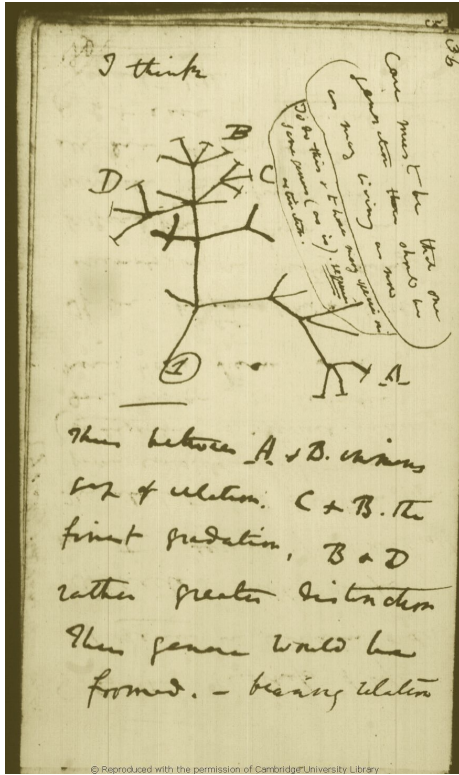 36
I think
Case must be that one
generation then should be
as many living as now
To do this & to have many species in
same genus (as is). requires
extinction.
B
C
D
A
1
Thus between A & B. immens
gap of relation. C & B. the
finest gradation, B & D
rather greater distinction
Thus genera would be
formed. — bearing relation
© Reproduced with the permission of Cambridge University Library